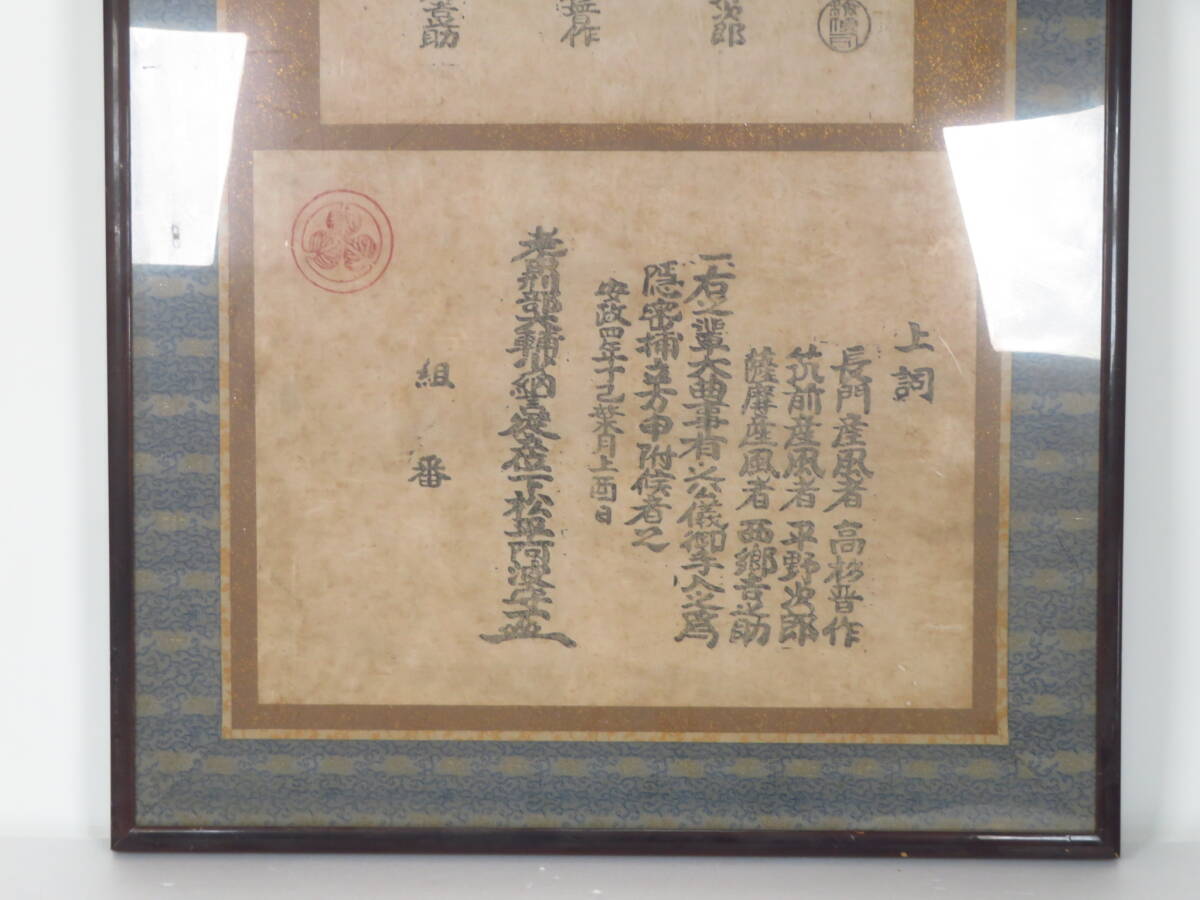 次郎
晋作
助
上詞
長門産風者 高杉晋作
筑前産風者 平野次郎
薩摩産風者 西郷吉之助
一右之輩大曲事有之公儀御手入之為
隠密捕立方申附候者之
安政四年丁巳葉月上酉日
老刑部大輔納言従位下松平阿波守
組番